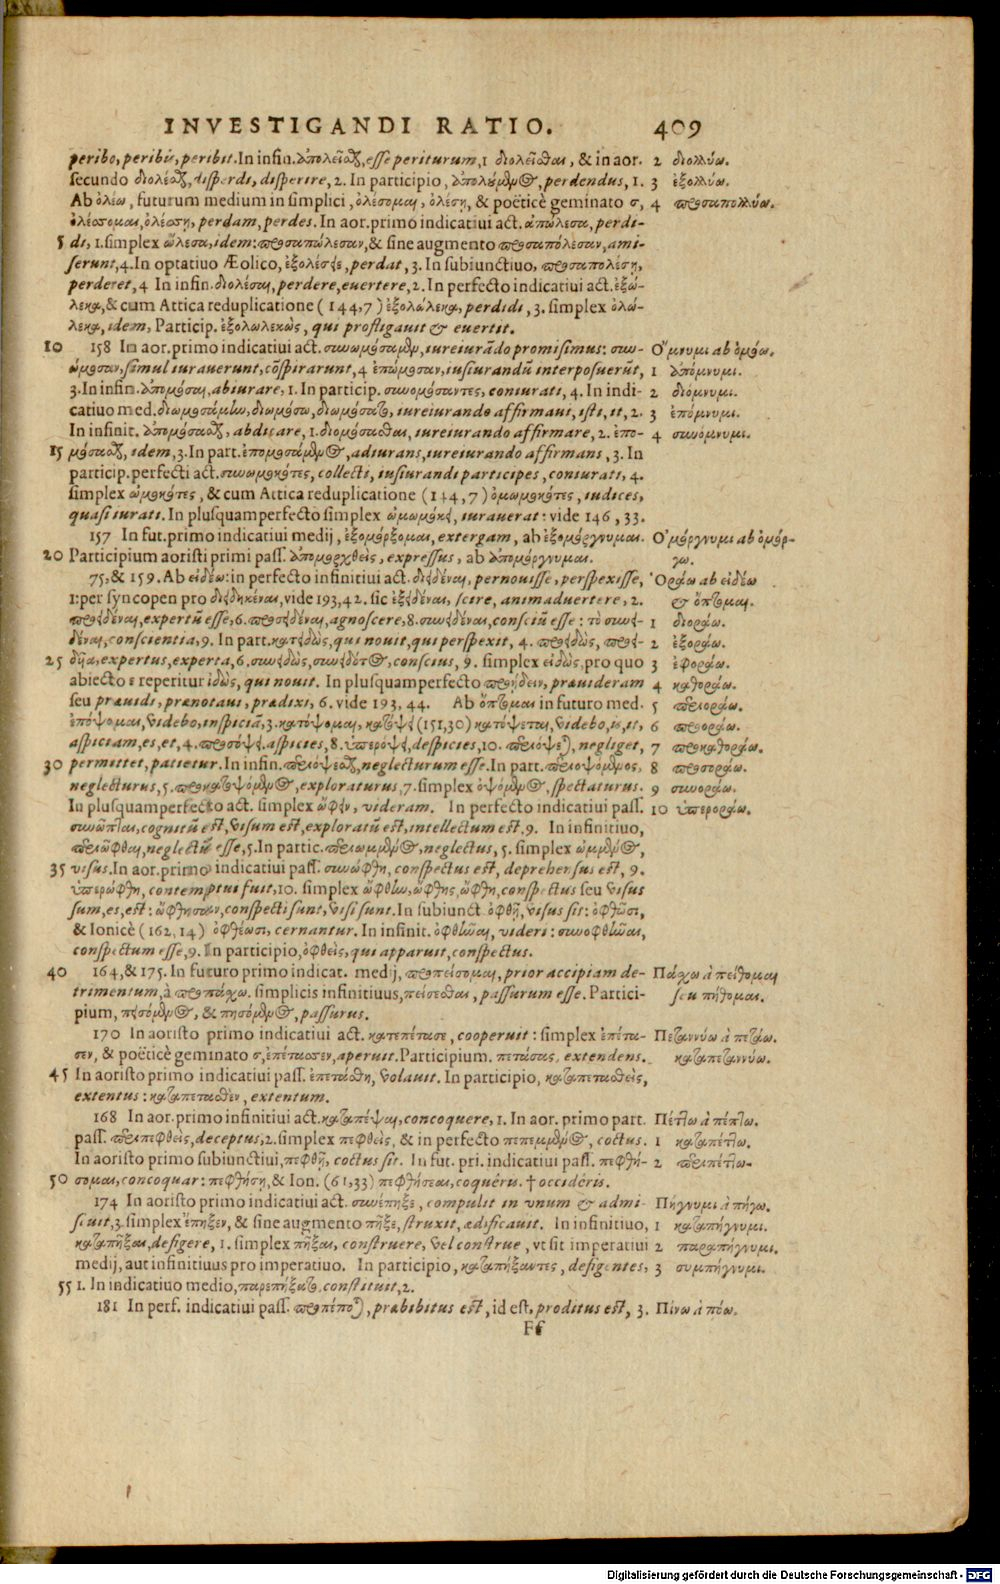 INVESTIGANDI RATIO. 409
peribo, peribis, peribit. In infin. ἀπολεῖσθαι, esse periturum, 1 διολεῖσθαι, & in aor. 2 διολλύω.
secundo διολέσθαι, disperdi, disperire, 2. In participio, ἀπολούμενος, perdendus, 1. 3 ἐξολλύω.
Ab ὀλέω, futurum medium in simplici, ὀλέσομαι, ὀλέσῃ, & poëticè geminato σ, 4 προσαπολλύω.
ὀλέσσομαι, ὀλέσσῃ, perdam, perdes. In aor. primo indicatiui act. ἀπώλεσα, perdi-
5 di, 1. simplex ὤλεσα, idem: προσαπώλεσαν, & sine augmento προσαπόλεσαν, ami-
serunt, 4. In optatiuo Æolico, ἐξολέσειε, perdat, 3. In subiunctiuo, προσαπολέσῃ,
perderet, 4 In infin. διολέσαι, perdere, euertere, 2. In perfecto indicatiui act. ἐξώ-
λεκα, & cum Attica reduplicatione (144,7) ἐξολώλεκα, perdidi, 3. simplex ὀλώ-
λεκα, idem, Particip. ἐξολωλεκὼς, qui profligauit & euertit.
10 158 In aor. primo indicatiui act. συνωμόσαμεν, iureiurãdo promisimus: συν- Ὄμνυμι ab ὀμόω.
ώμοσαν, simul iurauerunt, cõspirarunt, 4 ἐπώμοσαν, iusiurandũ interposuerũt, 1 ἀπόμνυμι.
3. In infin. ἀπομόσαι, abiurare, 1. In particip. συνομόσαντες, coniurati, 4. In indi- 2 διόμνυμι.
catiuo med. διωμοσάμην, διωμόσω, διωμόσατο, iureiurando affirmaui, isti, it, 2. 3 ἐπόμνυμι.
In infinit. ἀπομόσασθαι, abdicare, 1. διομόσασθαι, iureiurando affirmare, 2. ἐπο- 4 συνόμνυμι.
15 μόσασθαι, idem, 3. In part. ἐπομοσάμενος, adiurans, iureiurando affirmans, 3. In
particip. perfecti act. συνωμοκότες, collecti, iusiurandi participes, coniurati, 4.
simplex ὠμοκότες, & cum Attica reduplicatione (144,7) ὀμωμοκότες, iudices,
quasi iurati. In plusquamperfecto simplex ὠμωμόκει, iurauerat: vide 146, 33.
157 In fut. primo indicatiui medij, ἐξομόρξομαι, extergam, ab ἐξομόργνυμαι. Ὀμόργνυμι ab ὀμόρ-
20 Participium aoristi primi pass. ἀπομορχθεὶς, expressus, ab ἀπομόργνυμαι. γω.
75, & 159. Ab εἰδέω: in perfecto infinitiui act. διειδέναι, pernouisse, perspexisse, Ὁράω ab εἰδέω
1: per syncopen pro διειδηκέναι, vide 193,42. sic ἐξειδέναι, scire, animaduertere, 2. & ὄπτομαι.
προειδέναι, expertũ esse, 6. προσειδέναι, agnoscere, 8. συνειδέναι, consciũ esse: τὸ συνει- 1 διοράω.
δέναι, conscientia, 9. In part. κατειδὼς, qui nouit, qui perspexit, 4. προειδὼς, προει- 2 ἐξοράω.
25 δῦῖα, expertus, experta, 6. συνειδὼς, συνειδότος, conscius, 9. simplex εἰδὼς, pro quo 3 ἐφοράω.
abiecto ε reperitur ἰδὼς, qui nouit. In plusquamperfecto προῄδειν, præuideram 4 καθοράω.
seu præuidi, prænotaui, prædixi, 6. vide 193, 44. Ab ὄπτομαι in futuro med. 5 περιοράω.
ἐπόψομαι, videbo, inspiciã, 3. κατόψομαι, κατόψει (151,30) κατόψεται, videbo, is, it, 6 προοράω.
aspiciam, es, et, 4. προσόψει, aspicies, 8. ὑπερόψει, despicies, 10. περιόψεται, negliget, 7 προκαθοράω.
30 permittet, patietur. In infin. περιόψεσθαι, neglecturum esse. In part. περιοψόμενος, 8 προσοράω.
neglecturus, 5. προκατοψόμενος, exploraturus, 7. simplex ὀψόμενος, spectaturus. 9 συνοράω.
In plusquamperfecto act. simplex ὤφειν, videram. In perfecto indicatiui pass. 10 ὑπεροράω.
συνῶπται, cognitũ est, visum est, exploratũ est, intellectum est, 9. In infinitiuo,
περιῶφθαι, neglectũ esse, 5. In partic. περιωμμένος, neglectus, 5. simplex ὠμμένος,
35 visus. In aor. primo indicatiui pass. συνώφθη, conspectus est, deprehensus est, 9.
ὑπερώφθη, contemptus fuit, 10. simplex ὤφθην, ὤφθης, ὤφθη, conspectus seu visus
sum, es, est: ὤφθησαν, conspecti sunt, visi sunt. In subiunct. ὀφθῇ, visus sit: ὀφθῶσι,
& Ionicè (162,14) ὀφθέωσι, cernantur. In infinit. ὀφθῆναι, videri: συνοφθῆναι,
conspectum esse, 9. In participio, ὀφθεὶς, qui apparuit, conspectus.
40 164, & 175. In futuro primo indicat. medij, προπείσομαι, prior accipiam de- Πάσχω à πείθομαι
trimentum, à προπάσχω. simplicis infinitiuus, πείσεσθαι, passurum esse. Partici- seu πήθομαι.
pium, πεισόμενος, & πησόμενος, passurus.
170 In aoristo primo indicatiui act. κατεπέτασε, cooperuit: simplex ἐπέτα- Πεταννύω à πετάω.
σεν, & poëticè geminato σ, ἐπέτασσεν, aperuit. Participium. πετάσας, extendens. καταπεταννύω.
45 In aoristo primo indicatiui pass. ἐπετάσθη, volauit. In participio, καταπετασθεὶς,
extentus: καταπετασθὲν, extentum.
168 In aor. primo infinitiui act. καταπέψαι, concoquere, 1. In aor. primo part. Πέπτω à πέπτω.
pass. περιπεφθεὶς, deceptus, 2. simplex πεφθεὶς, & in perfecto πεπεμμένος, coctus. 1 καταπέπτω.
In aoristo primo subiunctiui, πεφθῇ, coctus sit. In fut. pri. indicatiui pass. πεφθή- 2 περιπέπτω.
50 σομαι, concoquar: πεφθήσῃ, & Ion. (61,33) πεφθήσεαι, coquêris. † occideris.
174 In aoristo primo indicatiui act. συνέπηξε, compulit in vnum & admi- Πήγνυμι à πήγω.
scuit, 3. simplex ἔπηξεν, & sine augmento πῆξε, struxit, ædificauit. In infinitiuo, 1 καταπήγνυμι.
καταπῆξαι, defigere, 1. simplex πῆξαι, construere, vel construe, vt sit imperatiui 2 παραπήγνυμι.
medij, aut infinitiuus pro imperatiuo. In participio, καταπήξαντες, defigentes, 3 συμπήγνυμι.
55 1. In indicatiuo medio, παρεπήξατο, constituit, 2.
181 In perf. indicatiui pass. προπέποται, præbibitus est, id est, proditus est, 3. Πίνω à πόω.
Ff
Digitalisierung gefördert durch die Deutsche Forschungsgemeinschaft - DFG